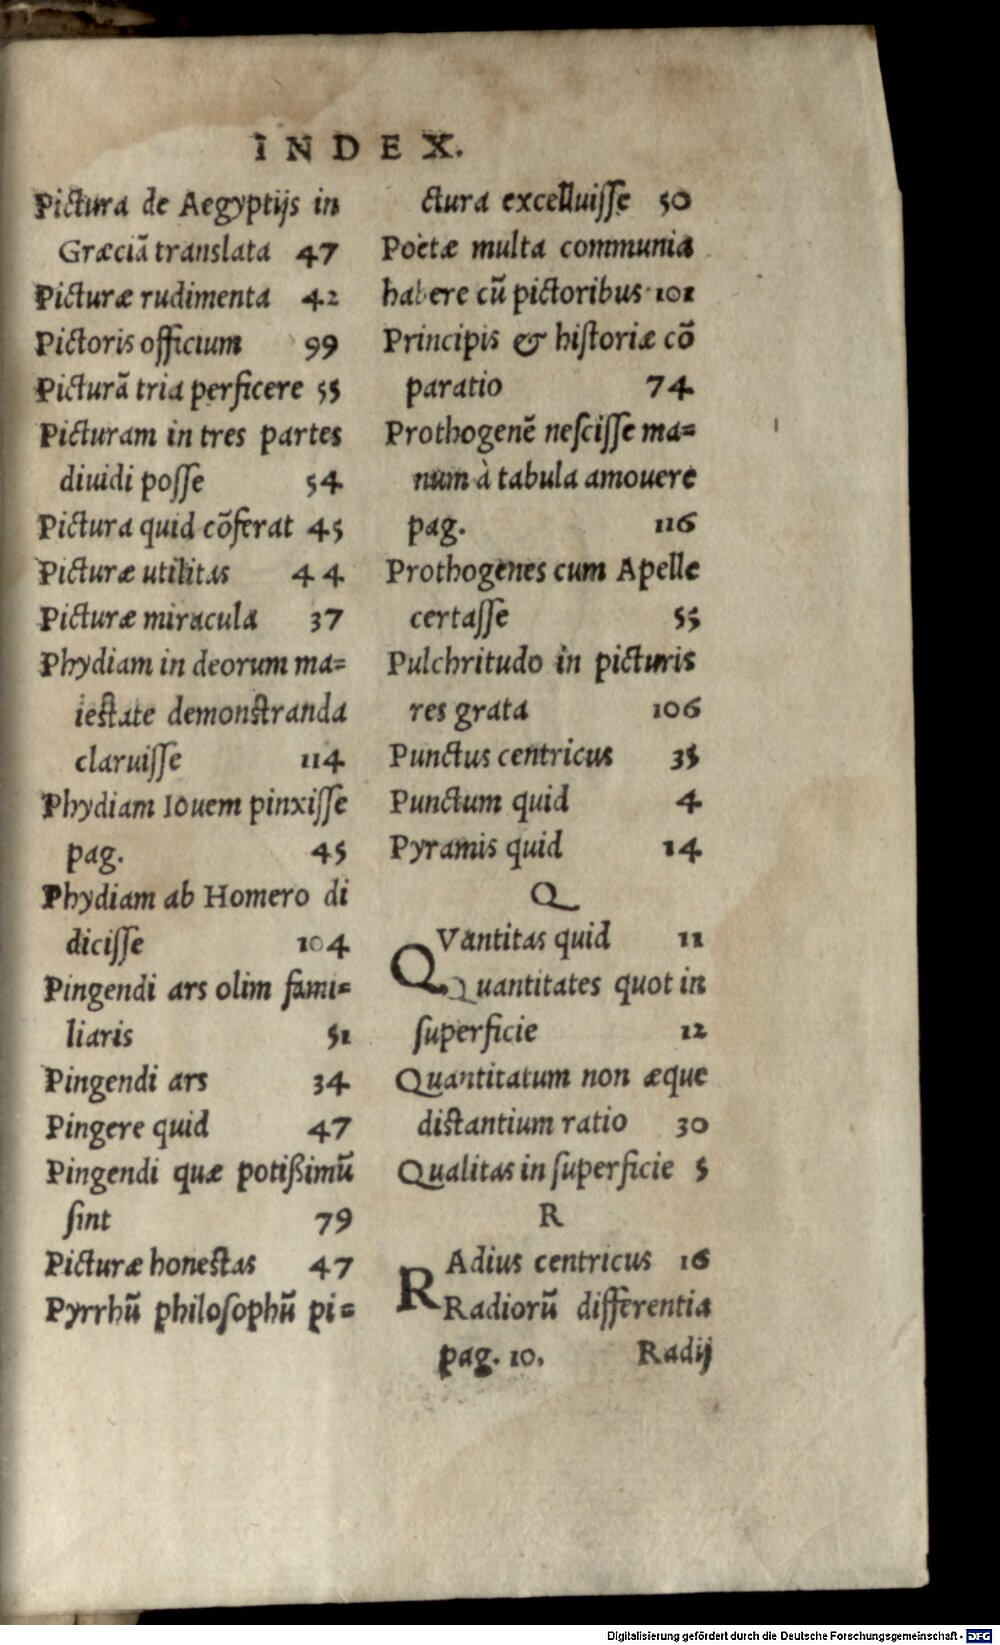 INDEX.
Pictura de Aegyptijs in
Græciã translata 47
Picturæ rudimenta 42
Pictoris officium 99
Picturã tria perficere 55
Picturam in tres partes
diuidi posse 54
Pictura quid cõferat 45
Picturæ utilitas 44
Picturæ miracula 37
Phydiam in deorum ma=
iestate demonstranda
claruisse 114
Phydiam Iouem pinxisse
pag. 45
Phydiam ab Homero di
dicisse 104
Pingendi ars olim fami=
liaris 51
Pingendi ars 34
Pingere quid 47
Pingendi quæ potißimũ
sint 79
Picturæ honestas 47
Pyrrhũ philosophũ pi=
ctura excelluisse 50
Poetæ multa communia
habere cũ pictoribus 101
Principis & historiæ cõ
paratio 74
Prothogenẽ nescisse ma=
num à tabula amouere
pag. 116
Prothogenes cum Apelle
certasse 55
Pulchritudo in picturis
res grata 106
Punctus centricus 35
Punctum quid 4
Pyramis quid 14
Q
QVantitas quid 11
Quantitates quot in
superficie 12
Quantitatum non æque
distantium ratio 30
Qualitas in superficie 5
R
RAdius centricus 16
Radiorũ differentia
pag. 10. Radij
Digitalisierung gefördert durch die Deutsche Forschungsgemeinschaft - DFG